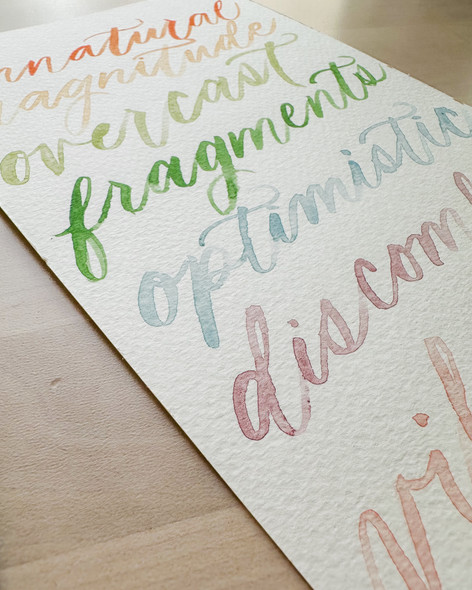 magnitude
overcast
fragments
optimistic
discom